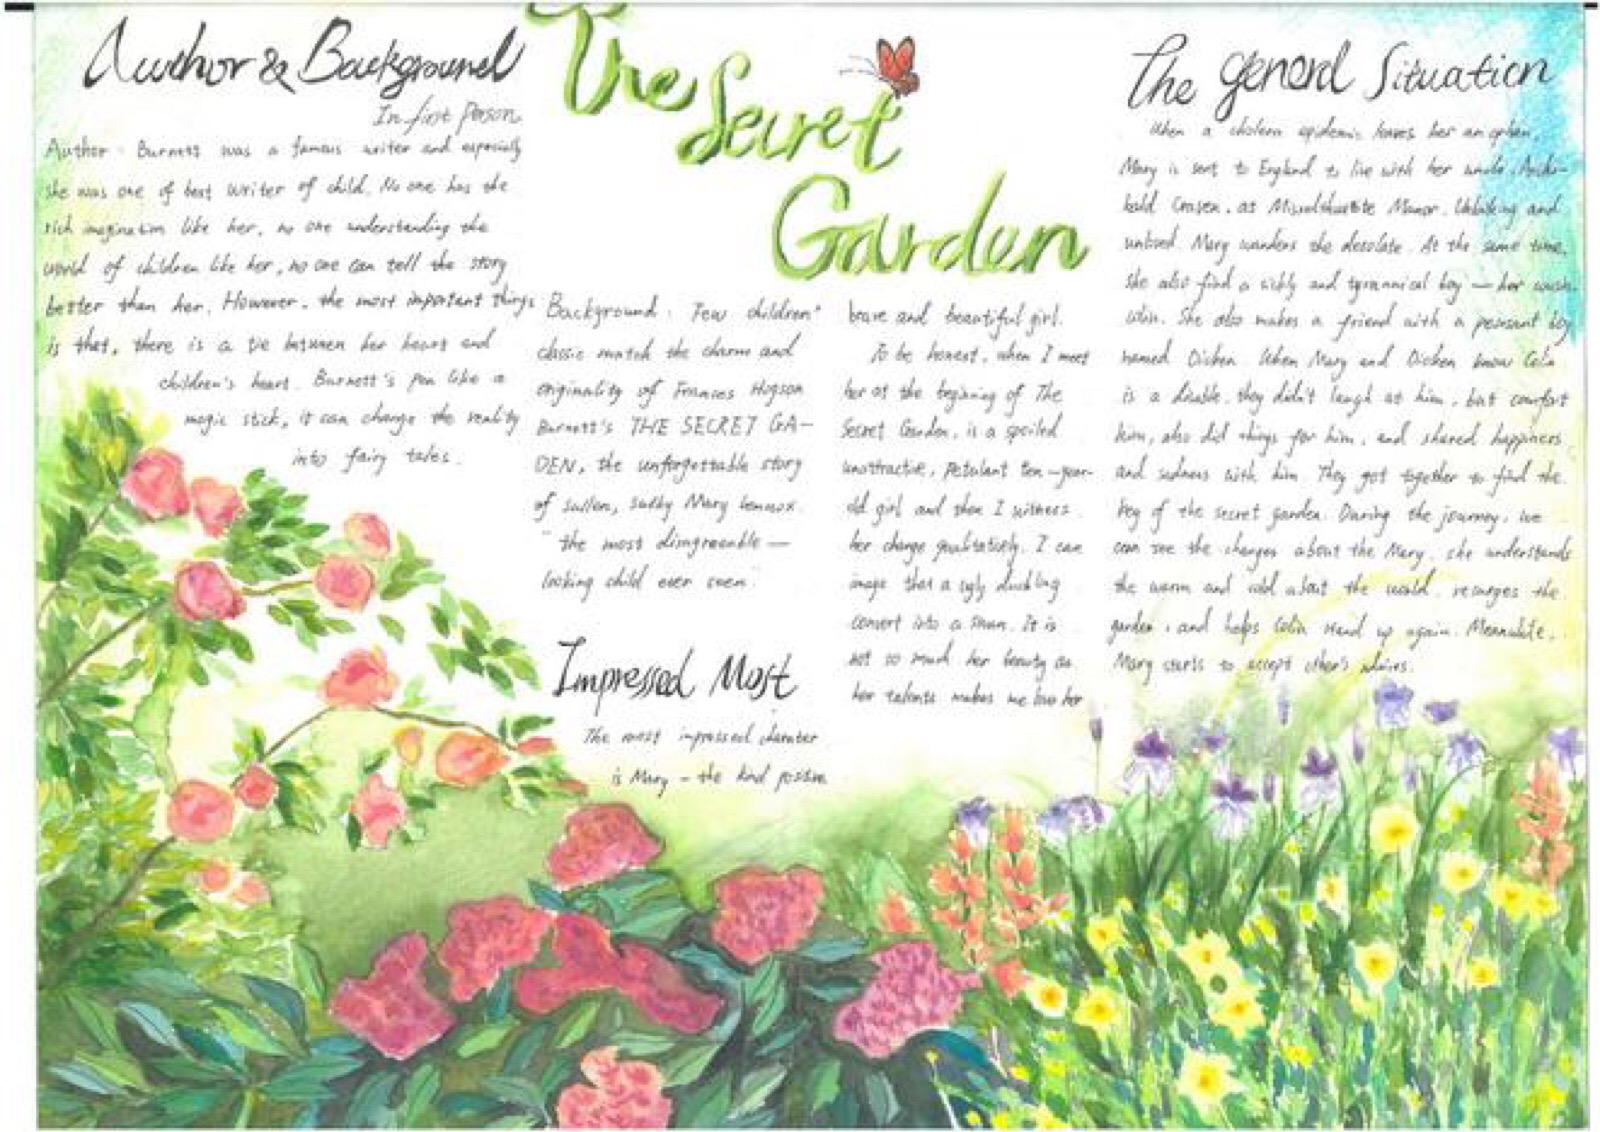 The Secret
Garden
Author & Background
In first person
Author: Burnett was a famous writer and especially
she was one of best writer of child. No one has the
rich imagination like her, no one understanding the
world of children like her, no one can tell the story
better than her. However, the most important things
is that, there is a tie between her heart and
children's heart. Burnett's pen like a
magic stick, it can change the reality
into fairy tales.
Background: Few children'
classic match the charm and
originality of Frances Hogson
Burnett's THE SECRET GA-
DEN, the unforgettable story
of sullen, sulky Mary Lennox.
"the most disagreeable—
looking child ever seen".
Impressed Most
The most impressed charater
is Mary - the kind
brave and beautiful girl.
To be honest, when I meet
her at the beginning of The
Secret Garden, is a spoiled
unattractive, petulant ten-year-
old girl and then I witness
her change qualitatively. I can
image that a ugly duckling
convert into a swan. It is
not so much her beauty as
her talents makes me love her
The general Situation
When a cholera epidemic leaves her an orphan,
Mary is sent to England to live with her uncle, Archi-
bald Craven, at Manor. Unliking and
unloved. Mary wanders the desolate. At the same time,
she also find a sickly and tyrannical boy — her
colin. She also makes a friend with a peasant boy
named Dicken. When Mary and Dicken know Colin
is a disable, they didn't laugh at him, but comfort
him, also did things for him, and shared happiness
and sadness with him. They got together to find the
key of the secret garden. During the journey, we
can see the changes about the Mary, she understands
the warm and cold about the world, the
garden, and helps Colin stand up again. Meanwhile,
Mary starts to accept other's advices.